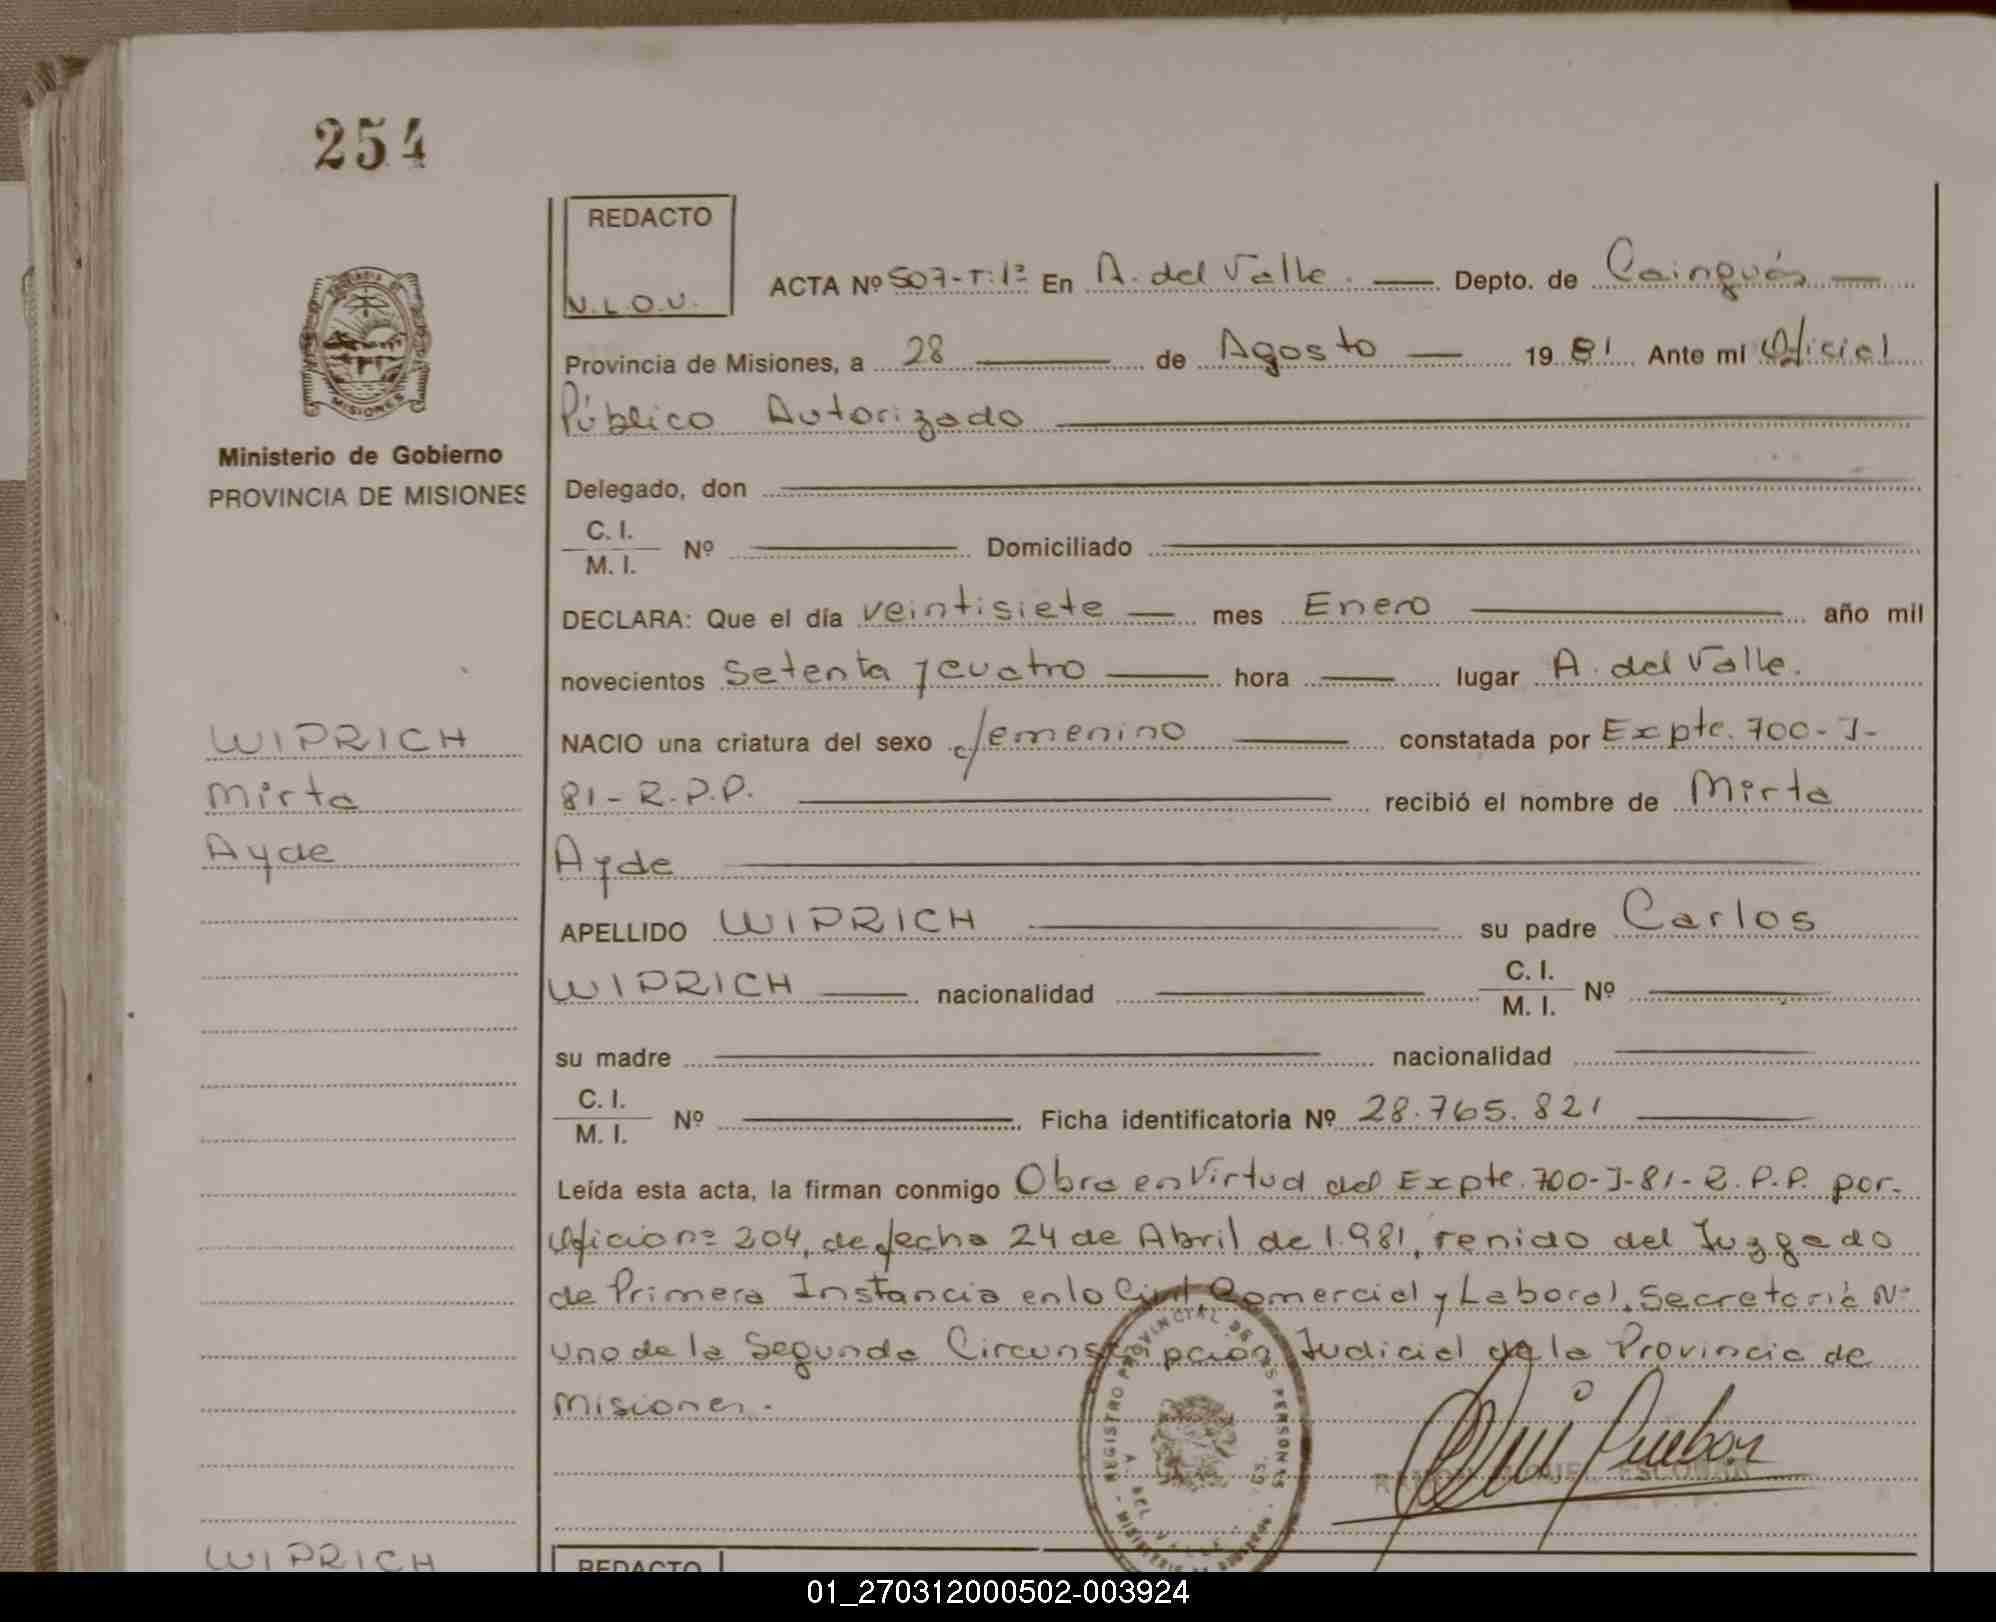 254
REDACTO
V.L.O.U.
ACTA Nº 507-T:1º En A. del Valle. Depto. de Cainguás
Provincia de Misiones, a 28 de Agosto 1981 Ante mí Oficial
Público Autorizado
MISIONES
Ministerio de Gobierno
PROVINCIA DE MISIONES
Delegado, don
C. I.
M. I.
Nº Domiciliado
DECLARA: Que el día veintisiete mes Enero año mil
novecientos setenta y cuatro hora lugar A. del Valle.
WIPRICH
Mirta
Ayde
NACIO una criatura del sexo femenino constatada por Expte. 700-J-
81-R.P.P. recibió el nombre de Mirta
Ayde
APELLIDO WIPRICH su padre Carlos
WIPRICH nacionalidad C. I. M. I. Nº
su madre nacionalidad
C. I.
M. I.
Nº Ficha identificatoria Nº 28.765.821
Leída esta acta, la firman conmigo Obra en Virtud del Expte. 700-J-81-R.P.P. por
Oficio nº 204, de fecha 24 de Abril de 1.981, renido del Juzgado
de Primera Instancia en lo Civil Comercial y Laboral, Secretaria Nº
uno de la Segunda Circunscripción Judicial de la Provincia de
Misiones.
REGISTRO PROVINCIAL DE LAS PERSONAS
A. DEL VALLE
ESCOBAR
WIPRICH
REDACTO
01_270312000502-003924